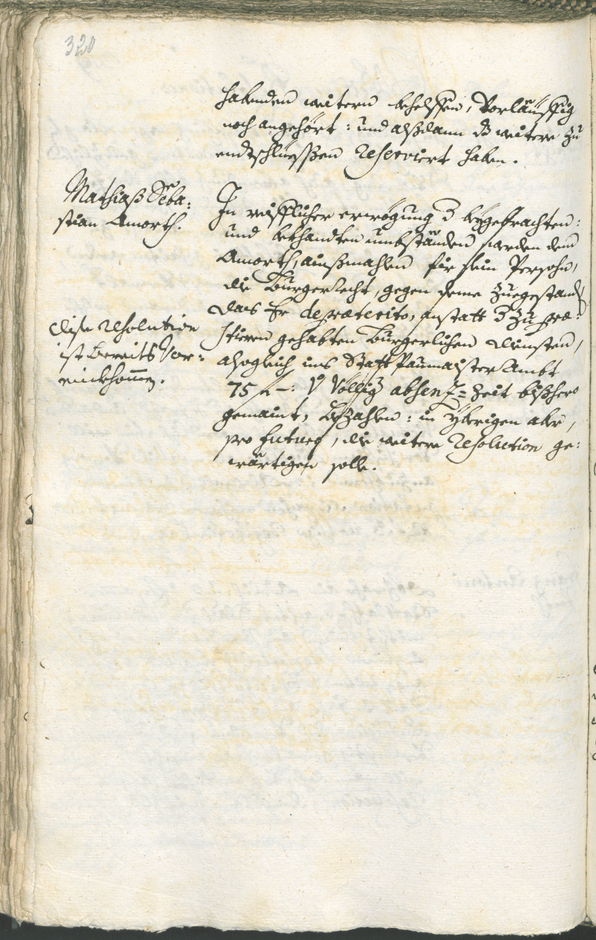 320
habenden weitern behelffen, Vorläuffig
noch angehört: und alßdann d weitere zu
endtschliessen reserviert haben.
Mathiaß Seba:
stian Amorth.
In reifflicher erwögung d beygebrachten:
und bekhandten umbständen werden dem
Amorth, ainßmahlen für sein Persohn,
die Burgerlich, gegen deme zuegestand
das Er de praeterito, anstatt d zu prae:
stieren gehabten burgerlichen diensten,
alsogleich ins Statt Paumaister Ambt
75 f –: völlig absenz Zeit bißhero
gemaint, bezahlen: in ybrigen aber,
pro futuro, die weitere resolution ge:
wärtigen solle.
dise resolution
ist bereits Vor:
einkhomen.